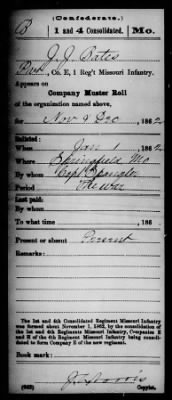 (Confederate.)
B 1 and 4 Consolidated. Mo.
J. J. Bates
Pvt, Co. E, 1 Reg't Missouri Infantry.
Appears on
Company Muster Roll
of the organization named above,
for Nov & Dec, 1862
Enlisted:
When Jan 1, 1862
Where Springfield Mo
By whom Capt
Period The war
Last paid:
By whom
To what time , 186
Present or absent Present
Remarks:
The 1st and 4th Consolidated Regiment Missouri Infantry
was formed about November 1, 1862, by the consolidation
of the 1st and 4th Regiments Missouri Infantry, Companies E
and H of the 4th Regiment Missouri Infantry being consolidated
to form Company E of the new regiment.
Book mark:
(642)
Copyist.